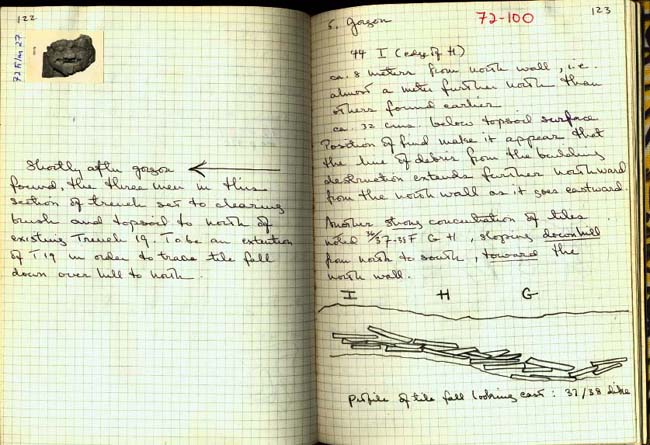 122
72 F/m 27
Shortly after gorgon
found, the three men in this
section of trench set to clearing
brush and topsoil to north of
existing Trench 19. To be an extention
of T19 in order to trace tile fall
down over hill to north.
123
5. Gorgon
72-100
44 I (edge of H)
ca. 8 meters from north wall, i.e.
almost a meter further north than
others found earlier
ca. 32 cms. below topsoil surface
Position of find make it appear that
the line of debris from the building
destruction extends further northward
from the north wall as it goes eastward
Another strong concentration of tiles
noted 36/37-38F G H, sloping downhill
from north to south, toward the
north wall.
I H G
Profile of tile fall looking east: 37/38 line